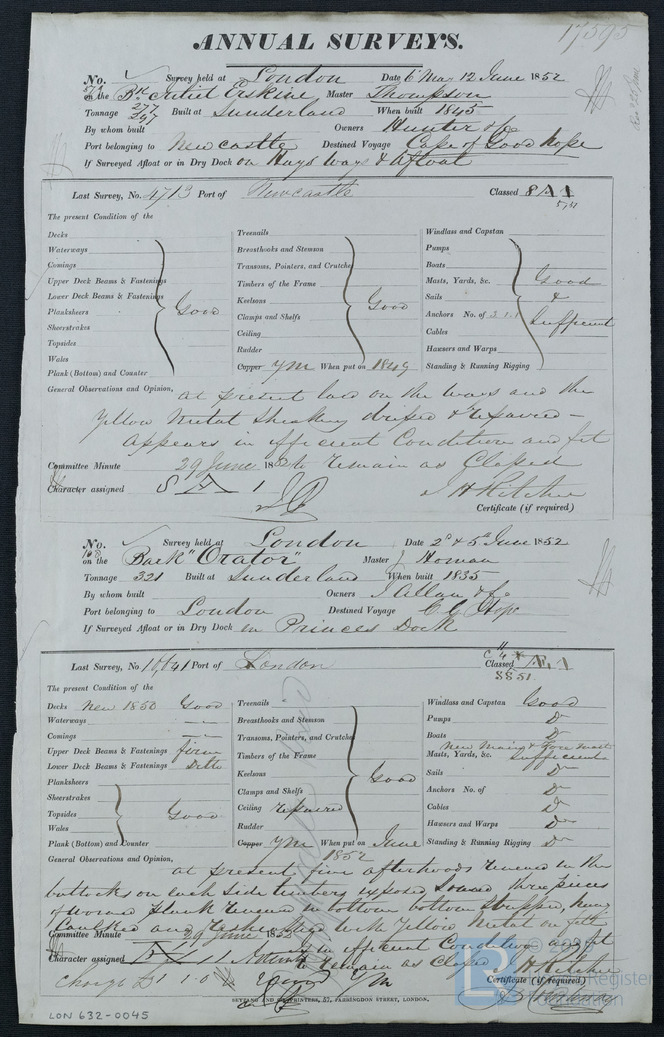 17595
ANNUAL SURVEYS.
No. Survey held at London Date 6 Mar 12 June 1852
on the Bk Juliet Erskine Master Thompson
Tonnage 277 297 Built at Sunderland When built 1845
By whom built Owners Hunter & Co
Port belonging to Newcastle Destined Voyage Cape of Good hope
If Surveyed Afloat or in Dry Dock on Ways & Afloat
Last Survey, No. 4713 Port of Newcastle Classed 8 A 1
The present Condition of the
Decks
Waterways
Comings
Upper Deck Beams & Fastenings
Lower Deck Beams & Fastenings
Planksheers
Sheerstrakes
Topsides
Wales
Plank (Bottom) and Counter
Good
Treenails
Breasthooks and Stemson
Transoms, Pointers, and Crutches
Timbers of the Frame
Keelsons
Clamps and Shelfs
Ceiling
Rudder
Good
Copper YM When put on 1849
Windlass and Capstan
Pumps
Boats
Masts, Yards, &c.
Sails
Anchors No. of 3.1.1
Cables
Hawsers and Warps
Standing & Running Rigging
Good
&
Sufficient
General Observations and Opinion, at present laid on the ways and the
Yellow Metal Sheathing striped & repaired –
Appears in efficient Condition and fit
Committee Minute 29 June 1852 to remain as Classed
Character assigned 8 A 1 J H Ritchie
Certificate (if required)
No. Survey held at London Date 2d & 5th June 1852
on the Bark "Orator" Master J Homan
Tonnage 321 Built at Sunderland When built 1835
By whom built Owners J Allan & Co
Port belonging to London Destined Voyage C G Hope
If Surveyed Afloat or in Dry Dock in Princes Dock
Last Survey, No 16641 Port of London Classed Æ 1
The present Condition of the
Decks New 1850 Good
Waterways
Comings
Upper Deck Beams & Fastenings firm
Lower Deck Beams & Fastenings Ditto
Planksheers
Sheerstrakes
Topsides
Wales
Plank (Bottom) and Counter
Good
Treenails
Breasthooks and Stemson
Transoms, Pointers, and Crutches
Timbers of the Frame
Keelsons
Clamps and Shelfs
Ceiling repaired
Rudder
Good
Copper YM When put on June
1852
Windlass and Capstan Good
Pumps Do
Boats Do
New Main & Fore mast
Masts, Yards, &c. Sufficient
Sails Do
Anchors No. of Do
Cables Do
Hawsers and Warps Do
Standing & Running Rigging Do
General Observations and Opinion, at present five afterhoods renewed in the
buttocks on each side timbers exposed Sound three pieces
of wormed plank renewed in bottom bottom Stripped, new
Caulked and with Yellow Metal on felt
Committee Minute 29 June 1852
in efficient Condition and fit
Character assigned to remain as Classed J H Ritchie
Certificate (if required)
SEYFANG AND CO. PRINTERS, 57, FARRINGDON STREET, LONDON.
LON 632-0045